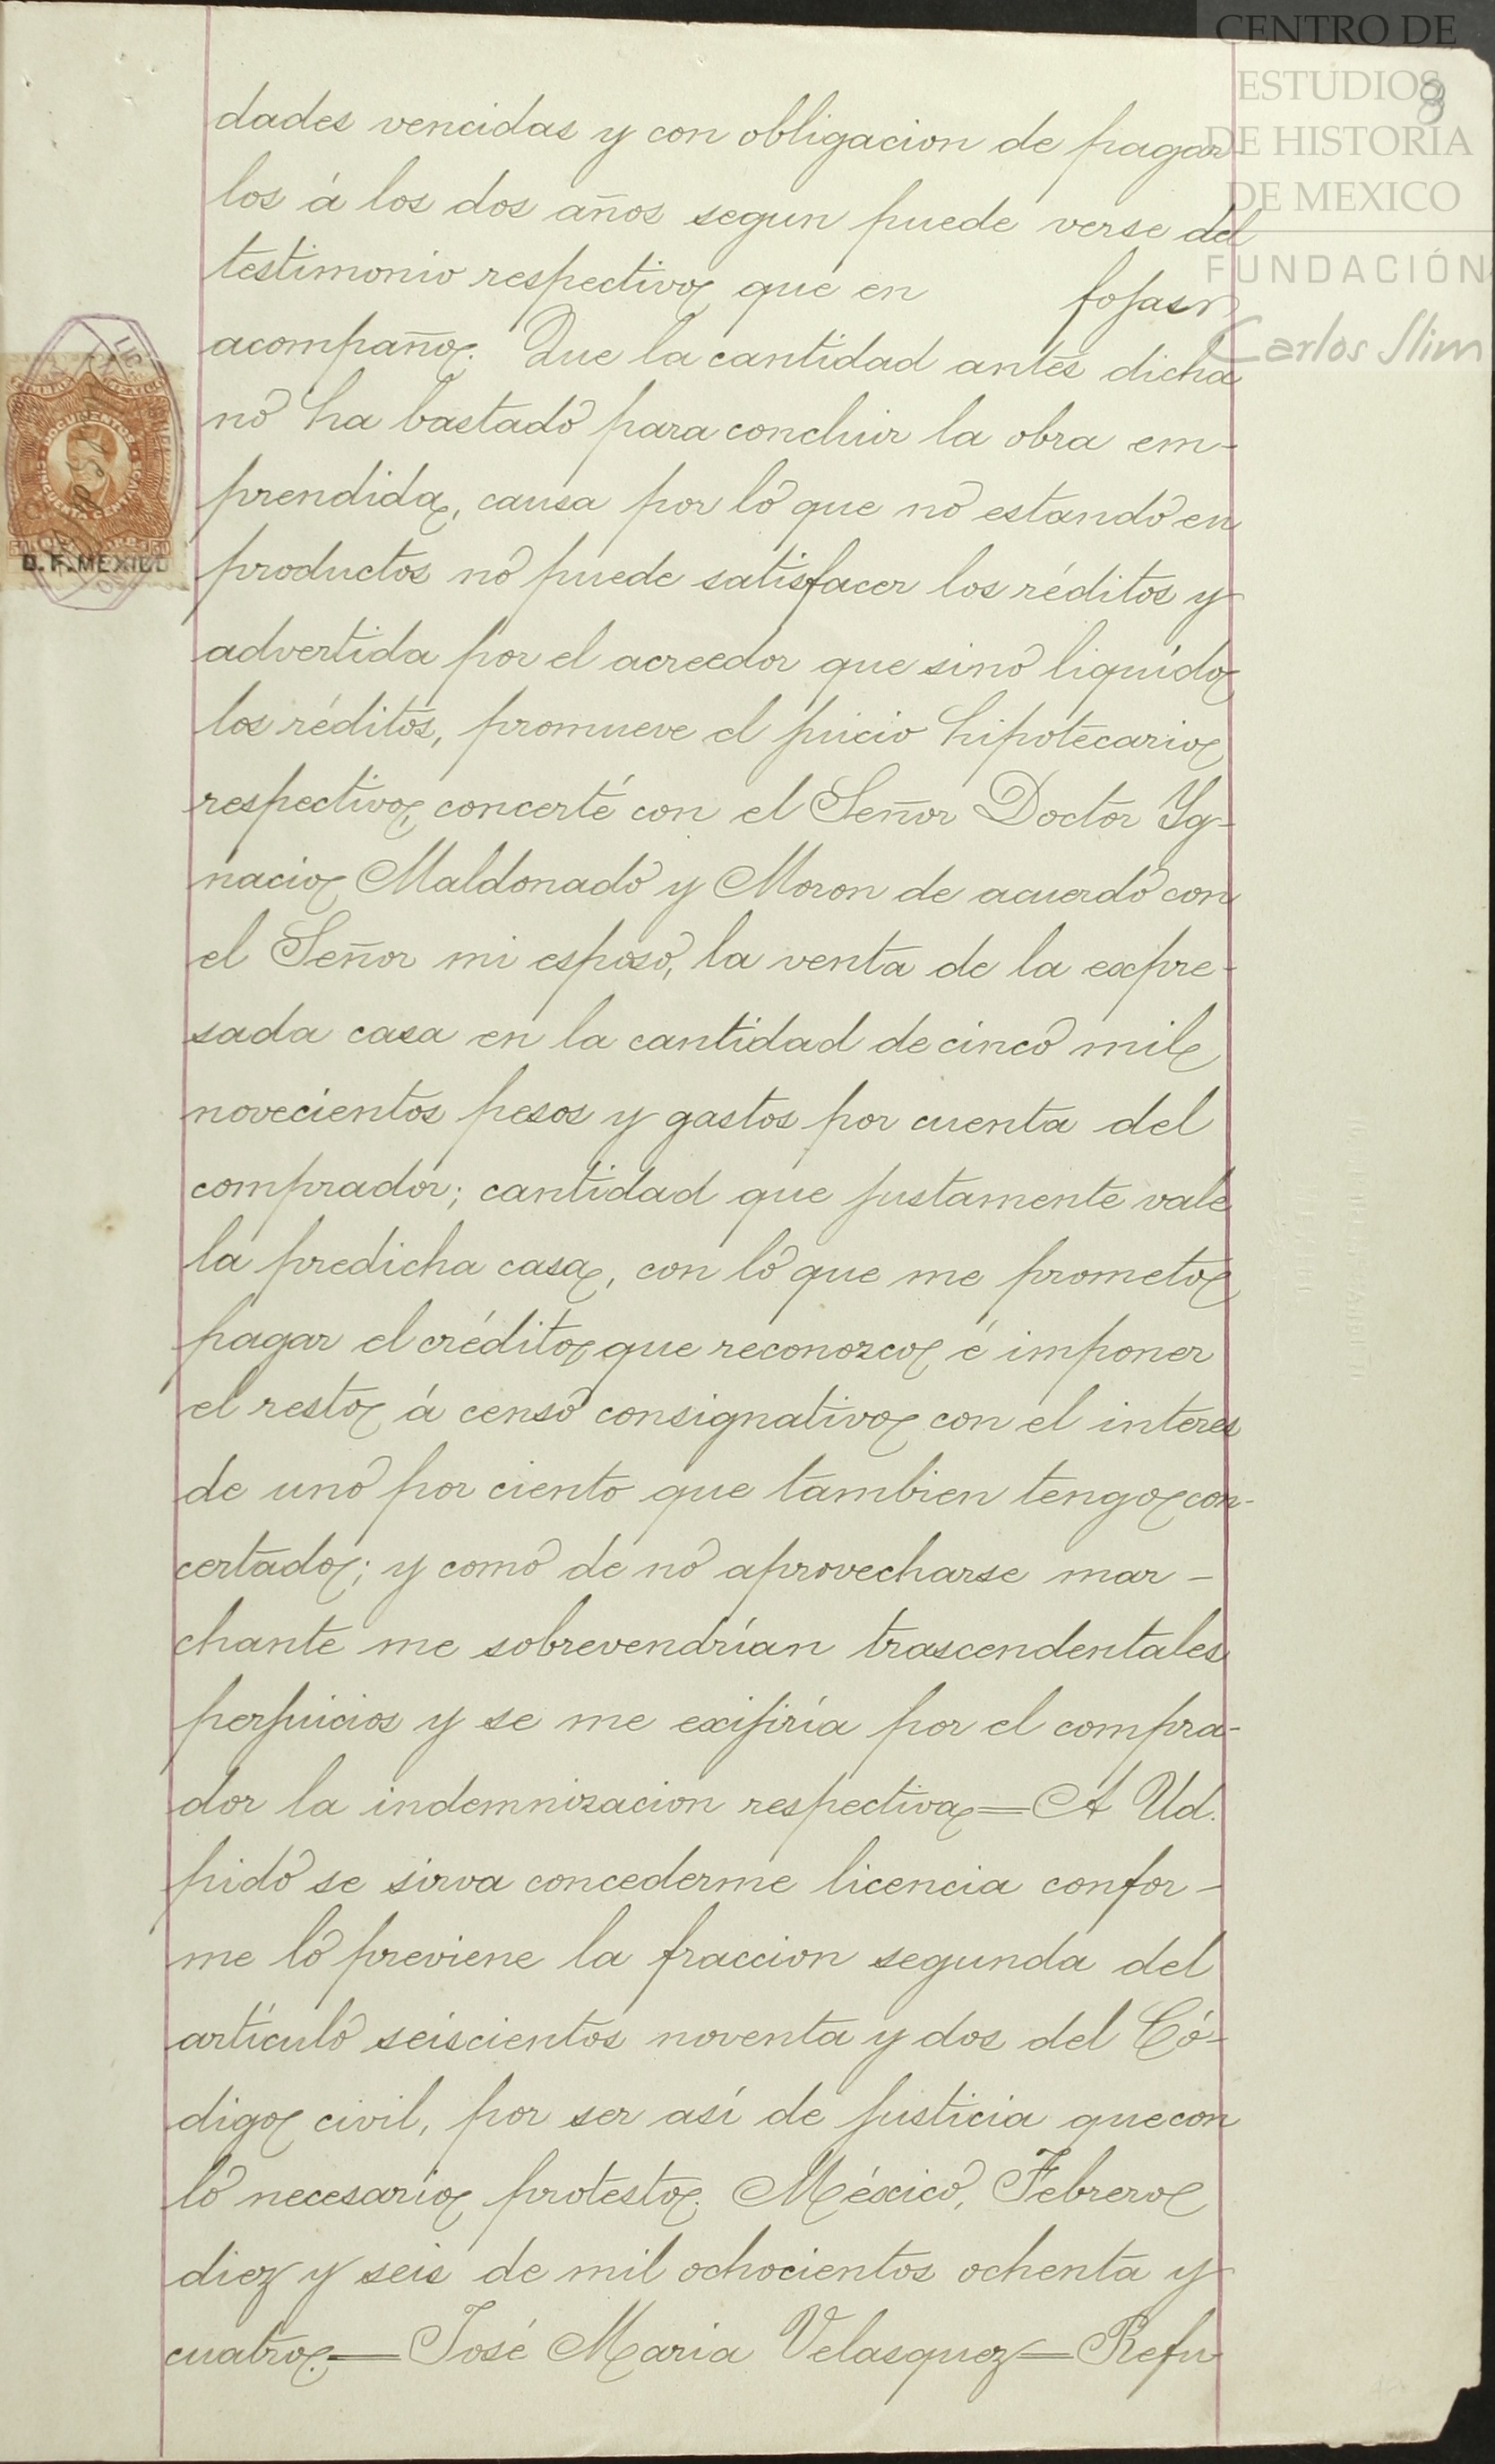 CENTRO DE
ESTUDIOS
DE HISTORIA
DE MEXICO
FUNDACIÓN
Carlos Slim
8
dades vencidas y con obligacion de pagar-
los á los dos años segun puede verse del
testimonio respectivo que en fojas
acompaño. Que la cantidad antes dicha
no ha bastado para concluir la obra em-
prendida, causa por lo que no estando en
productos no puede satisfacer los réditos y
advertida por el acreedor que sino liquido
los réditos, promueve el juicio hipotecario
respectivo, concerté con el Señor Doctor Yg-
nacio Maldonado y Moron de acuerdo con
el Señor mi esposo, la venta de la expre-
sada casa en la cantidad de cinco mil
novecientos pesos y gastos por cuenta del
comprador; cantidad que justamente vale
la predicha casa, con lo que me prometo
pagar el crédito que reconozco é imponer
el resto á censo consignativo con el interes
de uno por ciento que tambien tengo con-
certado; y como de no aprovecharse mar-
chante me sobrevendrían trascendentales
perjuicios y se me exijiría por el compra-
dor la indemnizacion respectiva=A Ud.
pido se sirva concederme licencia confor-
me lo previene la fraccion segunda del
artículo seiscientos noventa y dos del Có-
digo civil, por ser así de justicia que con
lo necesario protesto. México, Febrero
diez y seis de mil ochocientos ochenta y
cuatro.=José Maria Velasquez=Refu
DOCUMENTOS
D.F. MEXICO